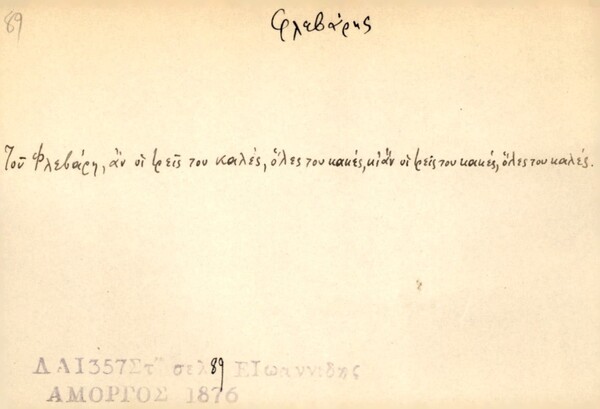 89
Φλεβάρης
Τοῦ Φλεβάρη, ἂν οἱ τρεῖς του καλές, ὅλες του κακές, κι ἂν οἱ τρεῖς του κακές, ὅλες του καλές.
ΛΑ 1357 Στ" σελ 89 Ε Ιωαννιδης
ΑΜΟΡΓΟΣ 1876